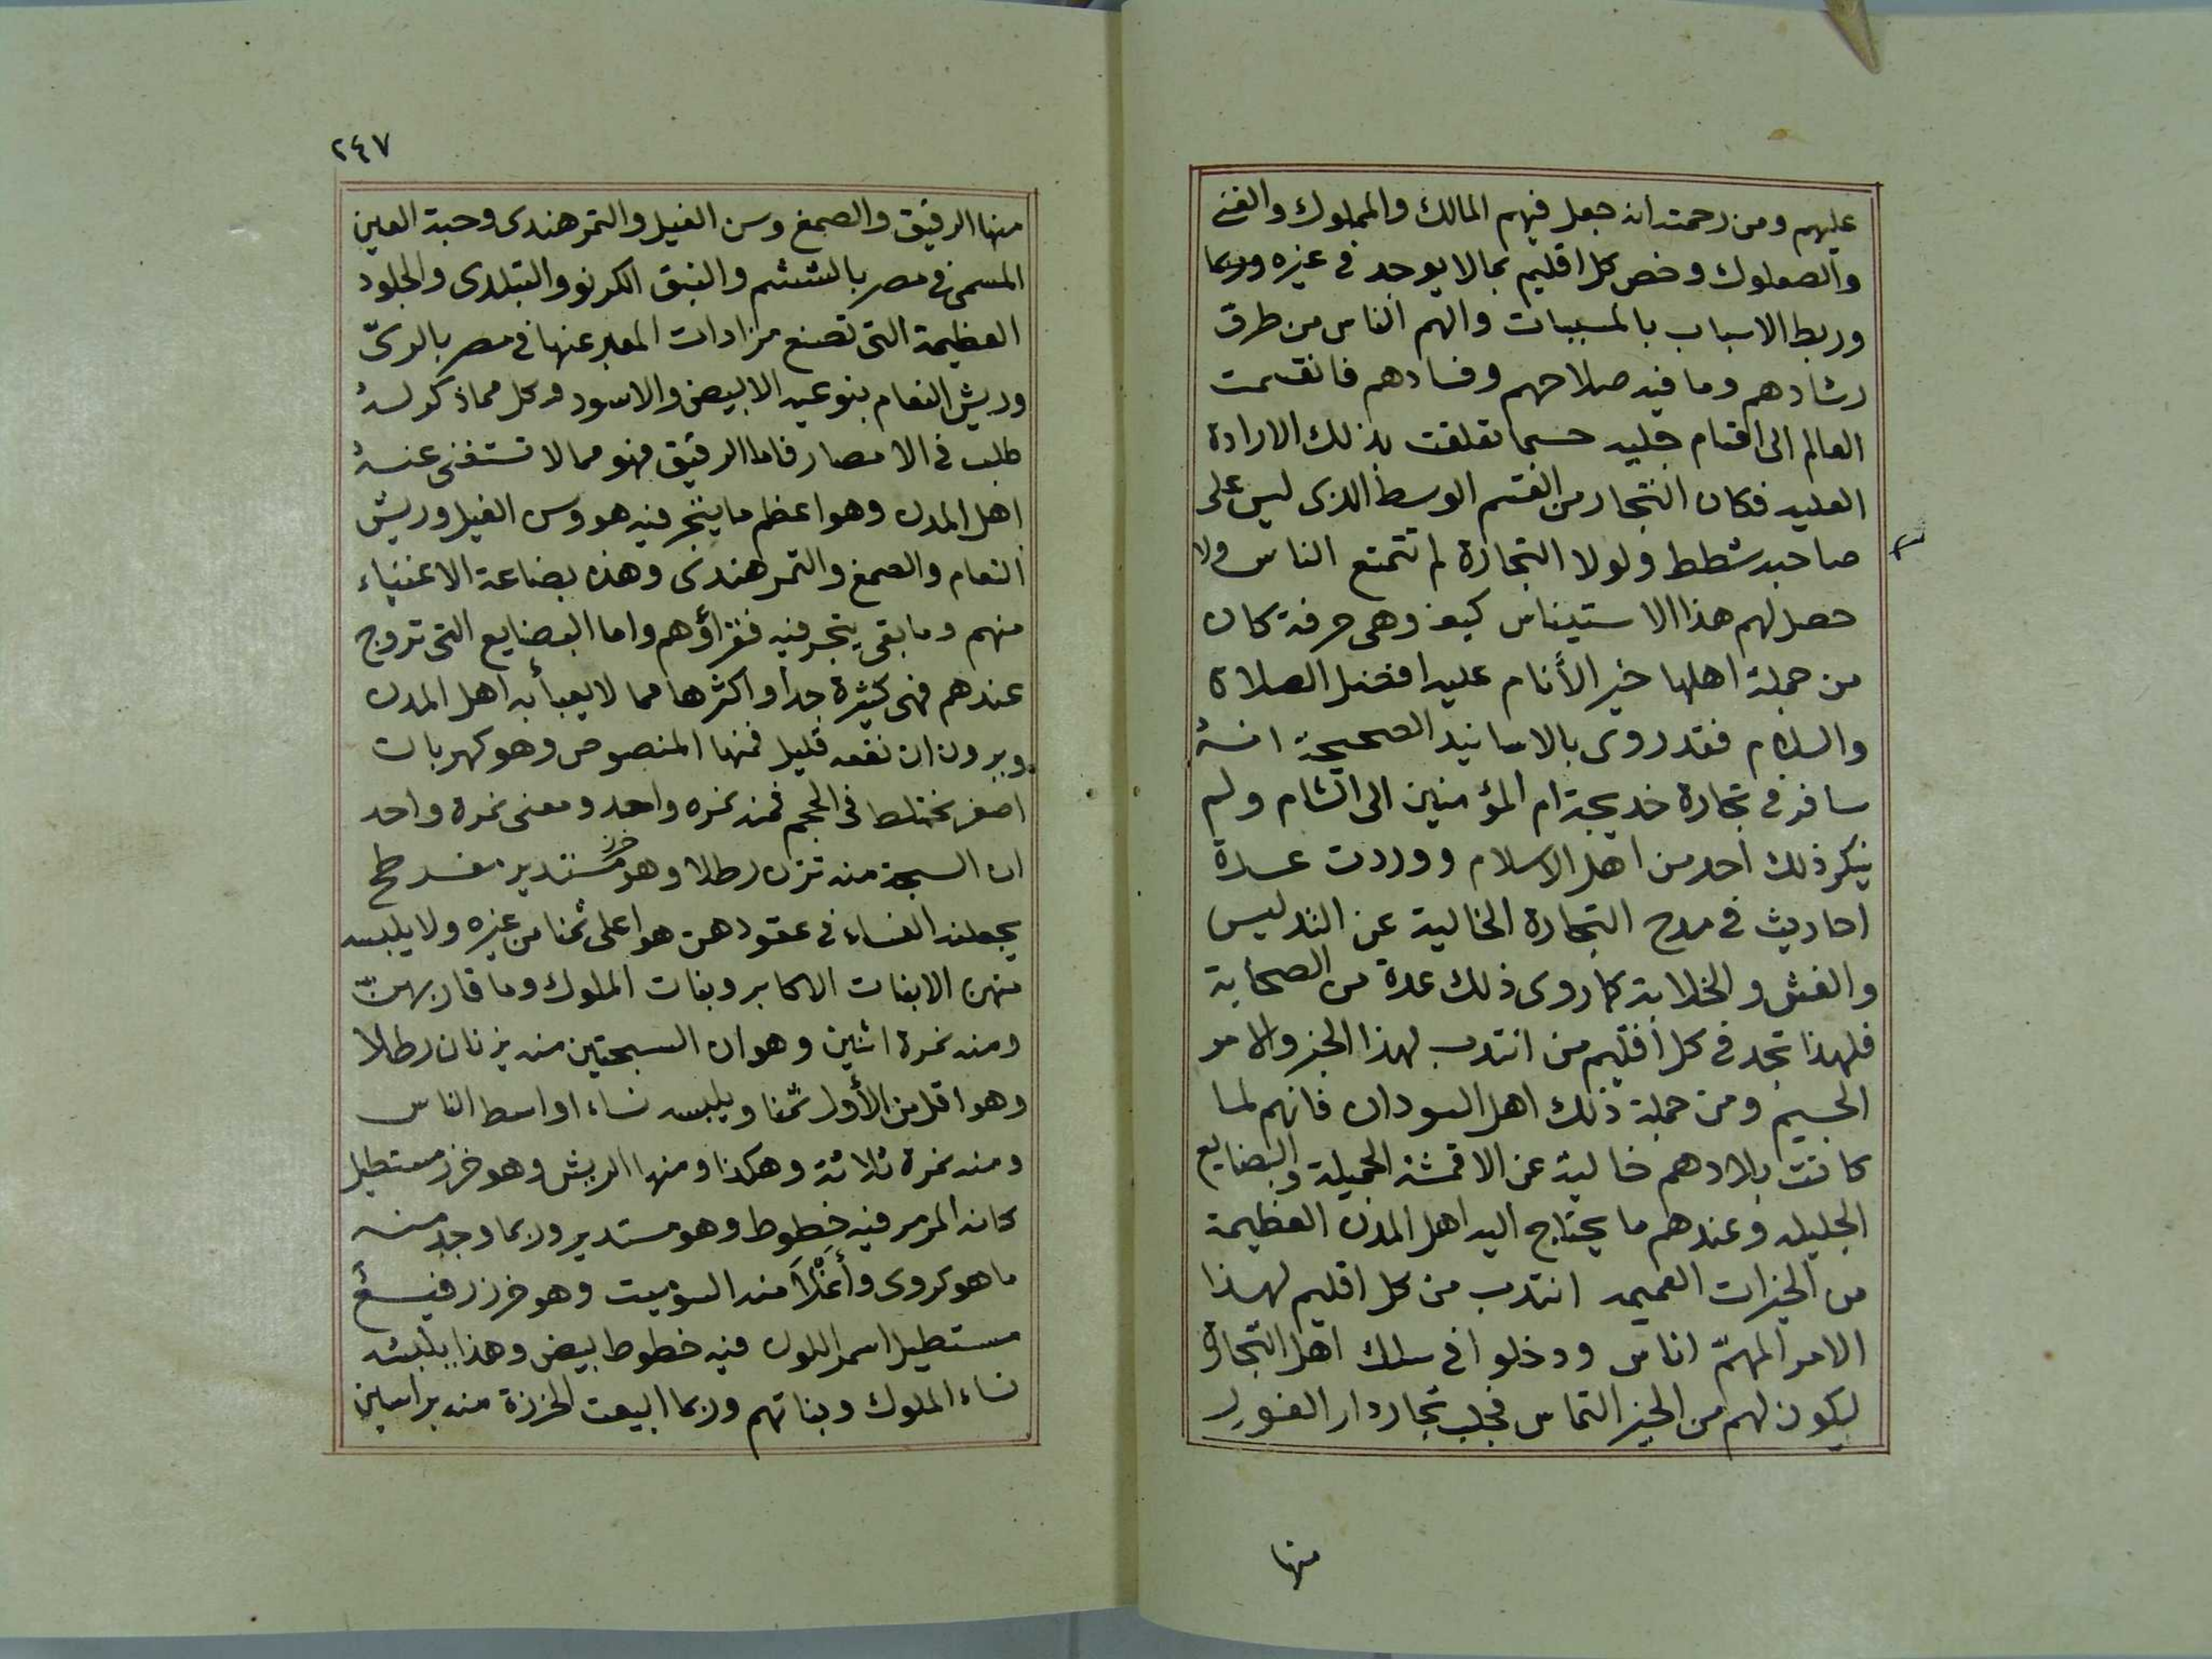 عليهم ومن رحمته انه جعل فيهم المالك والمملوك والغني
والصعلوك وخص كل اقليم بمالا يوجد في غيره وربما
وربط الاسباب بالمسببات والهم الناس من طرق
رشادهم وما فيه صلاحهم وفسادهم فانقسمت
العالم الى اقسام جليه حسبما تعلقت بذلك الارادة
العليه فكان التجار من القسم الوسط الذى ليس على
صاحبه شطط ولولا التجارة لم تتمتع الناس ولا
حصل لهم هذا الاستيناس كيف وهى حرفة كان
من جملة اهلها خير الأنام عليه افضل الصلاة
والسلام فقد روى بالاسانيد الصحيحة انه
سافر في تجارة خديجة ام المؤمنين الى الشام ولم
ينكر ذلك احد من اهل الاسلام ووردت عدة
احاديث في مدح التجارة الخالية عن التدليس
والغش والخلابة كما روى ذلك عدة من الصحابة
فلهذا تجد في كل اقليم من انتدب لهذا الخير والامر
الجسيم ومن جملة ذلك اهل السودان فانهم لما
كانت بلادهم خالية عن الاقمشة الجميلة والبضايع
الجليله وعندهم ما يحتاج اليه اهل المدن العظيمة
من الخيرات العميمه انتدب من كل اقليم لهذا
الامر المهمّ اناس ودخلوا في سلك اهل التجارة
ليكون لهم من الخير التماس فجلب تجار دار الفور
منها
٢٤٧
منها الرقيق والصمغ وسن الفيل والتمر هندى وحبة العين
المسمى في مصر بالششم والنبق الكرنو والتبلدى والجلود
العظيمة التى تصنع مزادات المعبر عنها في مصر بالرىّ
وريش النعام بنوعيه الابيض والاسود وكل مما ذكر له
طلب في الامصار فاما الرقيق فهو مما لا تستغنى عنه
اهل المدن وهو اعظم ما يتجر فيه هو وسن الفيل وريش
النعام والصمغ والتمر هندى وهذه بضاعة الاغنياء
منهم وما بقى يتجر فيه فقراؤهم واما البضايع التى تروج
عندهم فهى كثيرة جدا واكثرها مما لا يعبأ به اهل المدن
ويرون ان نفعه قليل فمنها المنصوص وهو كهربات
اصفر مختلط في الحجم فمنه نمره واحد ومعنى نمرة واحد
ان السبحة منه تزن رطلا وهو خرز مستدير مفرطح
يجعلنه النساء في عقودهن هو اعلى ثمنا من غيره ولا يلبسه
منهن الابنات الاكابر وبنات الملوك وما قاربهنّ
ومنه نمرة اثنين وهو ان السبحتين منه يزنان رطلا
وهو اقل من الأول ثمنا ويلبسه نساء اواسط الناس
ومنه نمرة ثلاثة وهكذا ومنها الريش وهو خرز مستطيل
كانه المرمر فيه خطوط وهو مستدير وربما وجد منه
ما هو كروى وأغلا منه السوميت وهو خرز رفيع
مستطيل اسمر اللون فيه خطوط بيض وهذا يلبسه
نساء الملوك وبناتهم وربما ابيعت الخرزة منه براسين